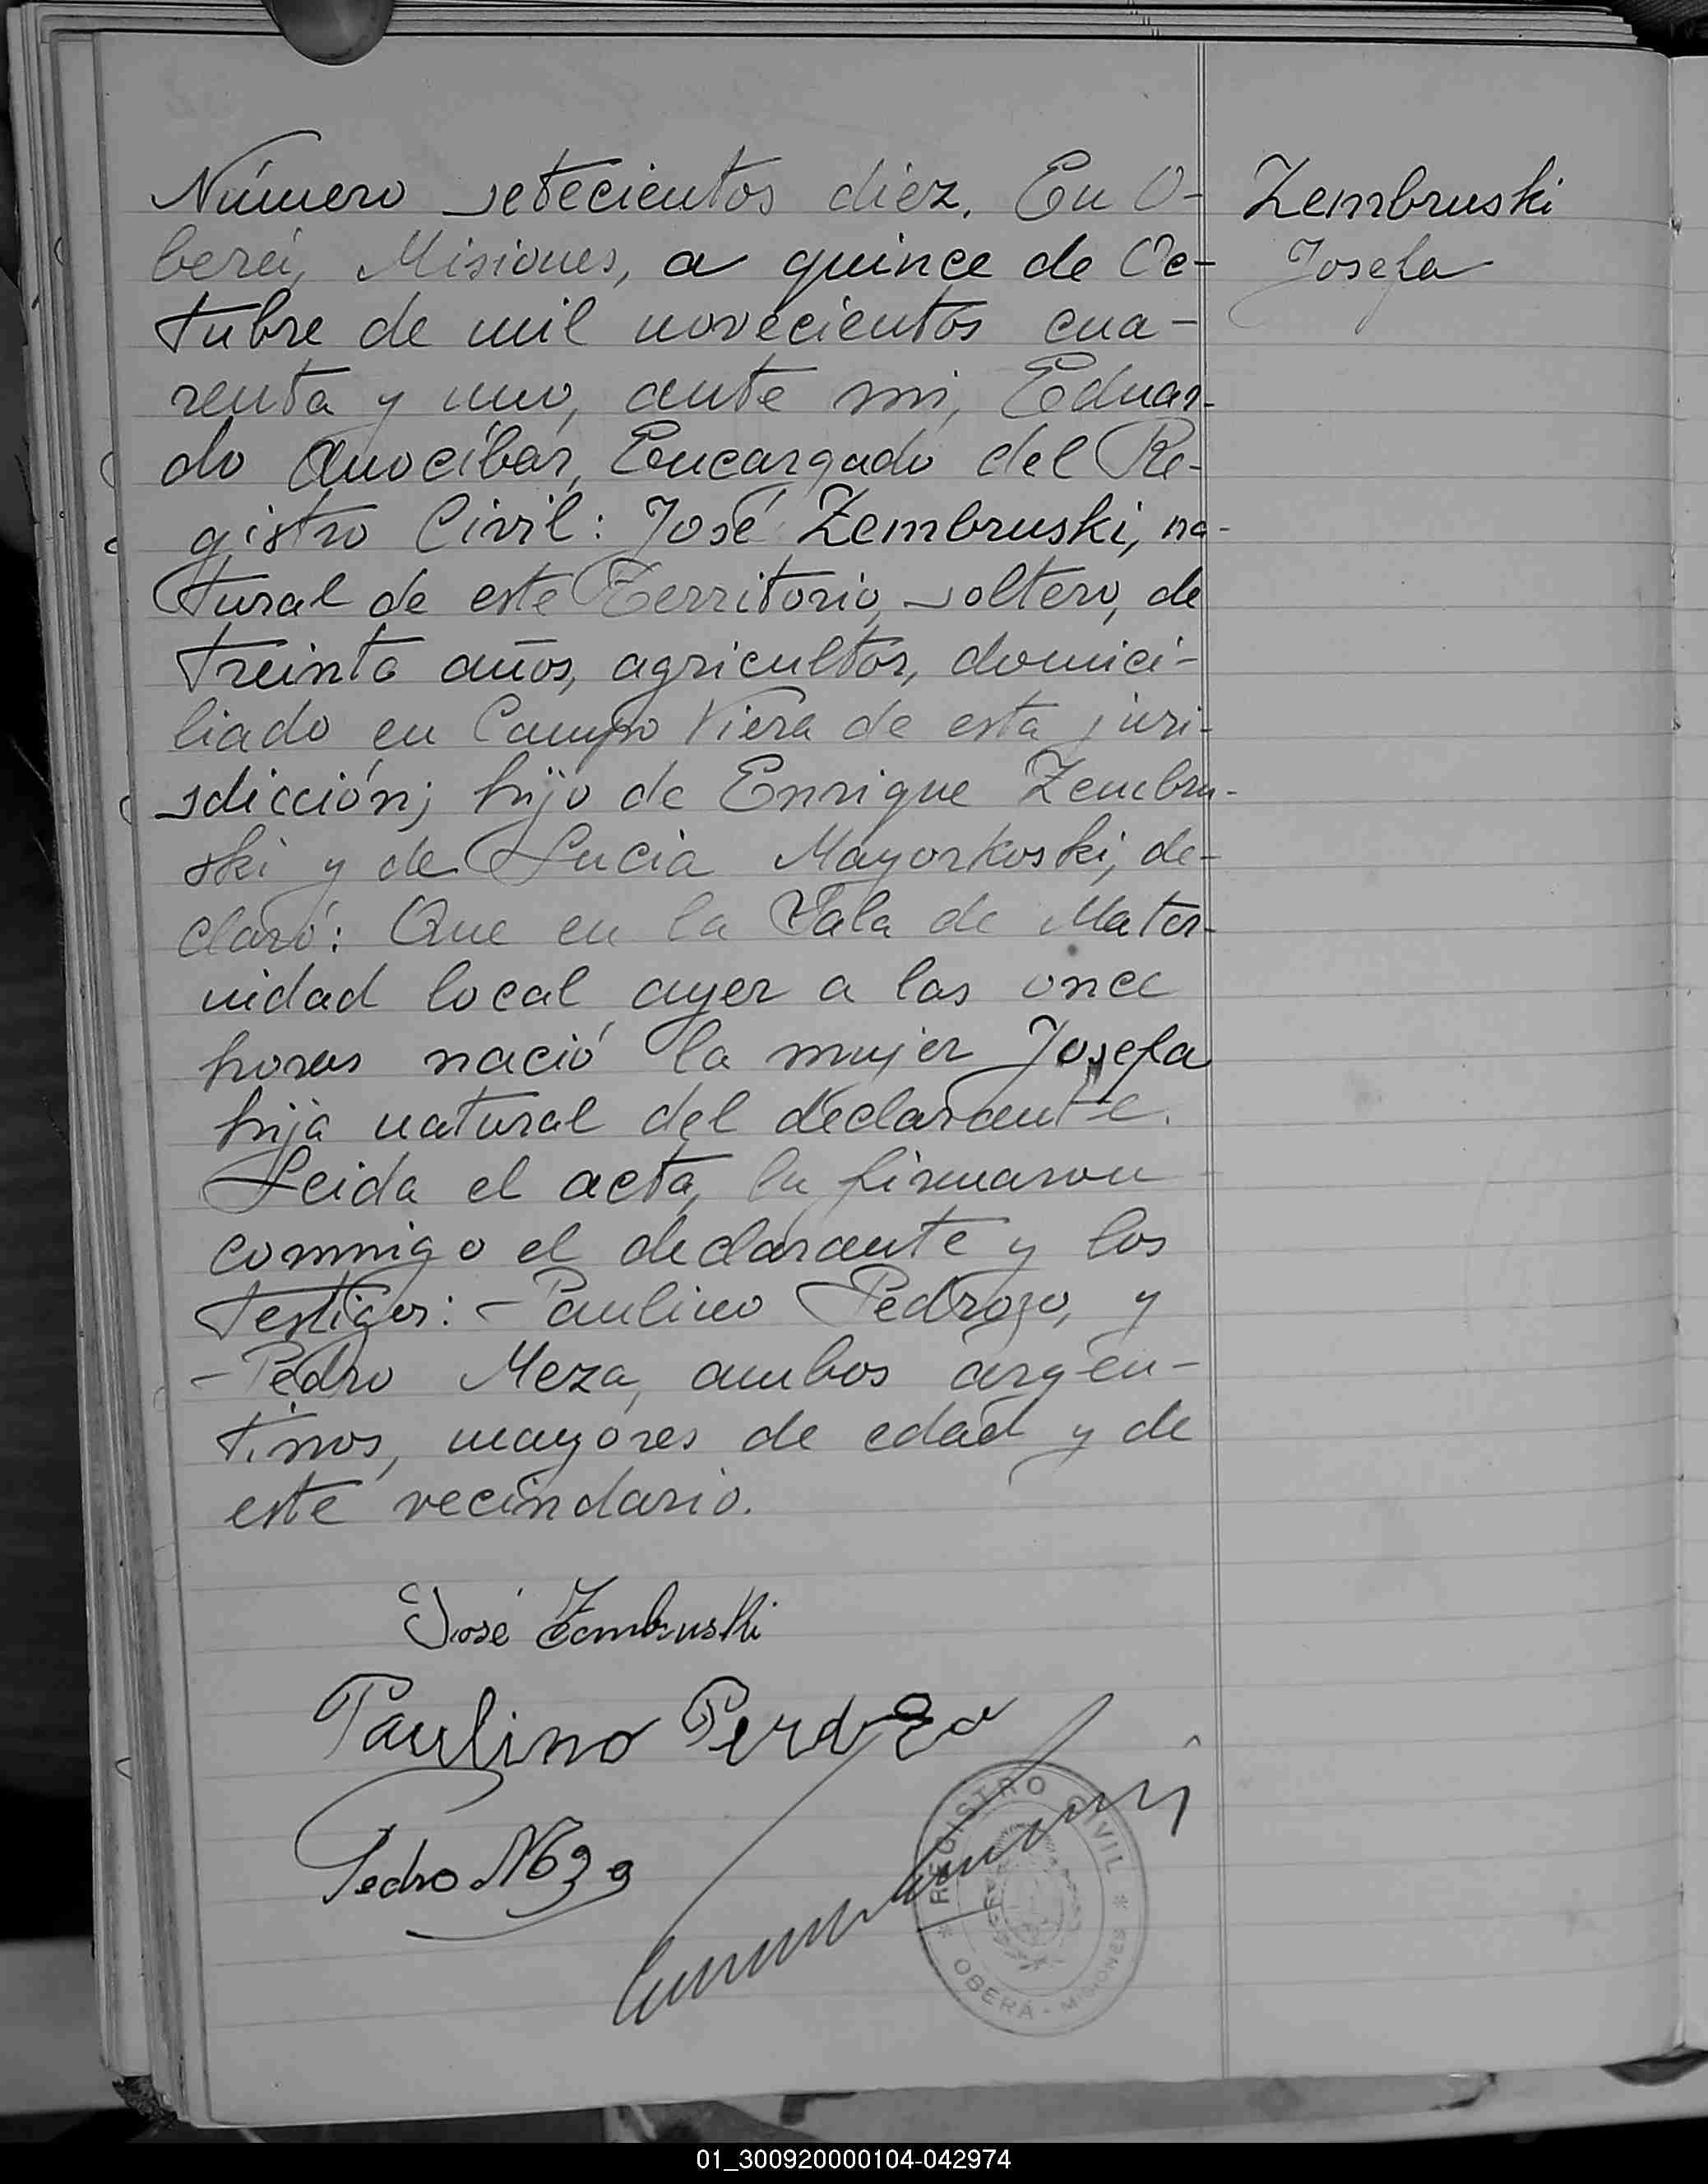 Número setecientos diez. En O-
berá, Misiones, a quince de Oc-
tubre de mil novecientos cua-
renta y uno, ante mi, Eduar-
do Anocíbar, Encargado del Re-
gistro Civil: José Zembruski, na-
tural de este Territorio, soltero, de
treinta años, agricultor, domici-
liado en Campo Viera de esta juri-
sdicción; hijo de Enrique Zembru-
ski y de Lucia Mayorkoski, de-
claró: Que en la Sala de Mater-
nidad local, ayer a las once
horas nació la mujer Josefa
hija natural del declarante.
Leida el acta, la firmaron
conmigo el declarante y los
testigos: Paulino Pedrozo, y
Pedro Meza, ambos argen-
tinos, mayores de edad y de
este vecindario.
Zembruski
Josefa
José Zembruski
Paulino Perdozo
Pedro Meza
REGISTRO CIVIL
* OBERÁ - MISIONES *
01_300920000104-042974